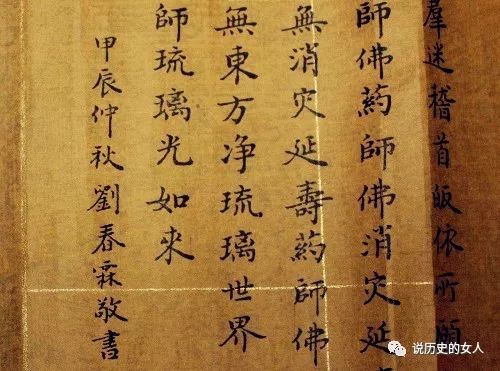 羣迷稽首皈依所願
師佛葯師佛消灾延
無消灾延壽葯師佛
無東方净琉璃世界
師琉璃光如來
甲辰仲秋劉春霖敬書
说历史的女人